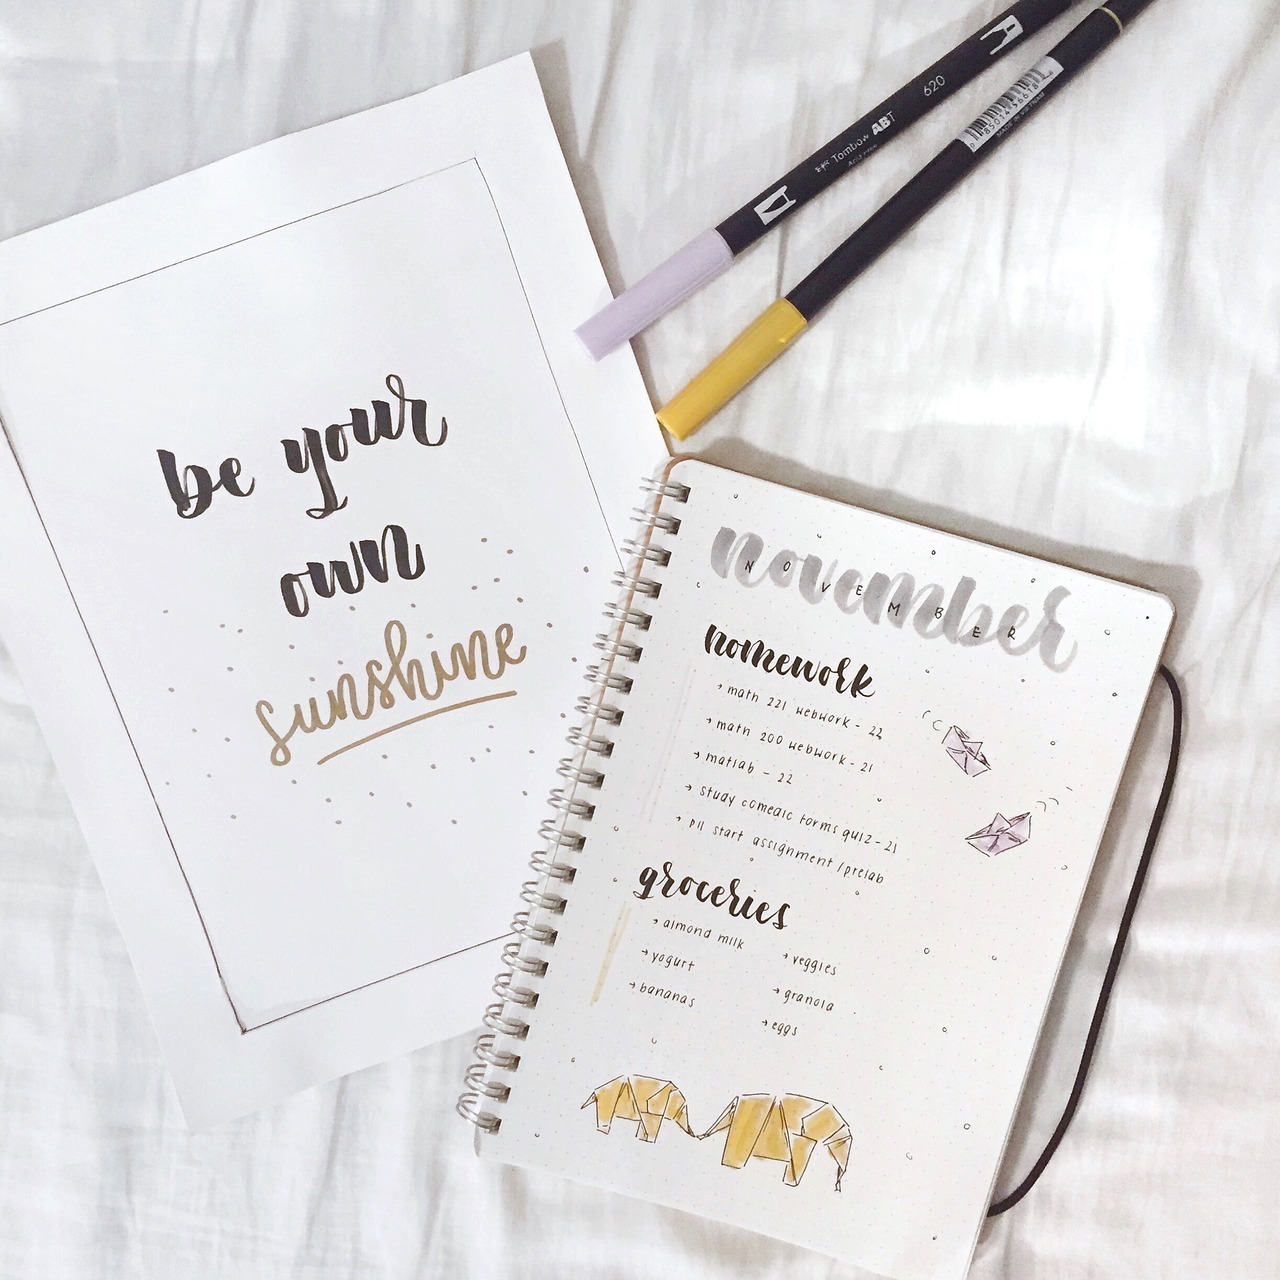 be your
own
sunshine
Tombow ABT 620
MADE IN VIETNAM
november
NOVEMBER
homework
→ math 221 webwork - 22
→ math 200 webwork - 21
→ matlab - 22
→ study comedic forms quiz - 21
→ p11 start assignment/prelab
groceries
→ almond milk
→ yogurt
→ bananas
→ veggies
→ granola
→ eggs